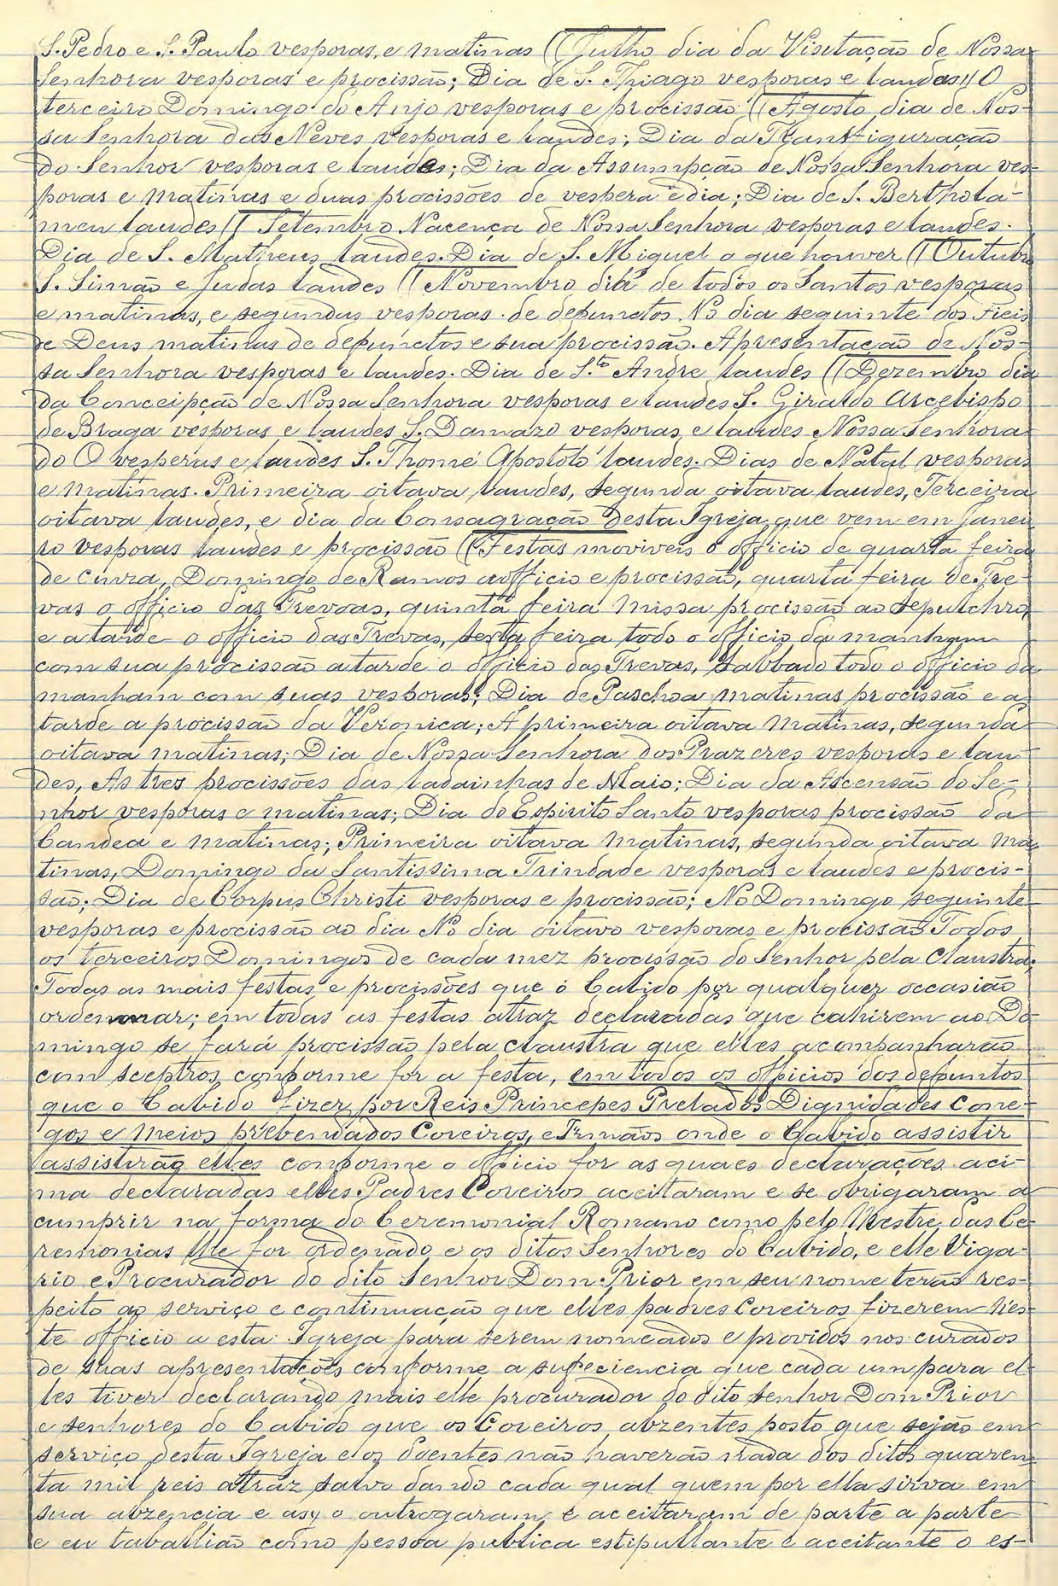 S. Pedro e S. Paulo vesporas, e matinas (( Julho dia da Visitação de Nossa
Senhora vesporas e procissão; Dia de S. Thiago vesporas e laudes (( O
terceiro Domingo do Anjo vesporas e procissão (( Agosto dia de Nos-
sa Senhora das Neves vesporas e laudes; Dia da Tranffiguração
do Senhor vesporas e laudes; Dia da Assumpção de Nossa Senhora ves-
poras e matinas e duas procissões de vespera e dia; Dia de S. Berthola-
meu laudes (( Setembro Nacença de Nossa Senhora vesporas e laudes.
Dia de S. Matheus laudes. Dia de S. Miguel o que houver (( Outubro
S. Simão e Judas laudes (( Novembro dia de todos os Santos vesporas
e matinas, e segundas vesporas de defunctos. No dia seguinte dos Fieis
de Deus matinas de defunctos e sua procissão. Apresentação de Nos-
sa Senhora vesporas e laudes. Dia de S.to Andre laudes (( Dezembro dia
da Conceipção de Nossa Senhora vesporas e laudes S. Giraldo Arcebispo
de Braga vesporas e laudes S. Damazo vesporas e laudes Nossa Senhora
do O vesperas e laudes S. Thomé Apostolo laudes. Dias de Natal vesporas
e matinas. Primeira oitava laudes, segunda oitava laudes, Terceira
oitava laudes, e dia da Consagração desta Igreja que vem em Janei-
ro vesporas laudes e procissão (( Festas moviveis o officio de quarta feira
de Cinza, Domingo de Ramos o officio e procissão, quarta feira de Tre-
vas o officio das Trevoas, quinta feira missa procissão ao sepulchro,
e a tarde o officio das Trevas, sexta feira todo o officio da manham
com sua procissão a tarde o officio das Trevas, Sabbado todo o officio da
manham com suas vesporas; Dia de Paschoa matinas procissão e a
tarde a procissão da Veronica; A primeira oitava Matinas, segunda
oitava matinas; Dia de Nossa Senhora dos Prazeres vesporas e lau-
des, As tres procissões das ladainhas de Maio; Dia da Ascensão do Se-
nhor vesporas e matinas; Dia do Espirito Santo vesporas procissão da
Candea e Matinas; Primeira oitava Matinas, segunda oitava Ma-
tinas, Domingo da Santissima Trindade vesporas e laudes e procis-
são; Dia de Corpus Christi vesporas e procissão; No Domingo seguinte
vesporas e procissão ao dia No dia oitavo vesporas e procissão Todos
os terceiros Domingos de cada mez procissão do Senhor pela Claustra,
Todas as mais festas e procissões que o Cabido por qualquer occasião
ordennar; em todas as festas atraz declaradas que cahirem ao Do-
mingo se fará procissão pela claustra que elles acompanharão
com sceptros conforme for a festa, em todos os officios dos defuntos
que o Cabido fizer por Reis Princepes Prelados Dignidades Cone-
gos e Meios prebendados Coreiros, e Irmãos onde o Cabido assistir
assistirão elles conforme o officio for as quaes declarações aci-
ma declaradas elles Padres Coreiros aceitaram e se obrigaram a
cumprir na forma do Ceremonial Romano como pelo Mestre das Ce-
remonias lhe for ordenado e os ditos Senhores do Cabido, e elle Viga-
rio e Procurador do dito Senhor Dom Prior em seu nome terão res-
peito ao serviço e continuação que elles padres Coreiros fizerem nes-
te officio a esta Igreja para serem nomeados e providos nos curados
de suas apresentações conforme a sufeciencia que cada um para el-
les tiver declarando mais elle procurador do dito senhor Dom Prior
e senhores do Cabido que os Coreiros abzentes posto que sejão em
serviço desta Igreja e os doentes não haverão nada dos ditos quaren-
ta mil reis atraz salvo dando cada qual quem por ella sirva em
sua abzencia e asy o outrogaram, e aceitaram de parte a parte
e eu taballião como pessoa publica estipullante e aceitante o es-